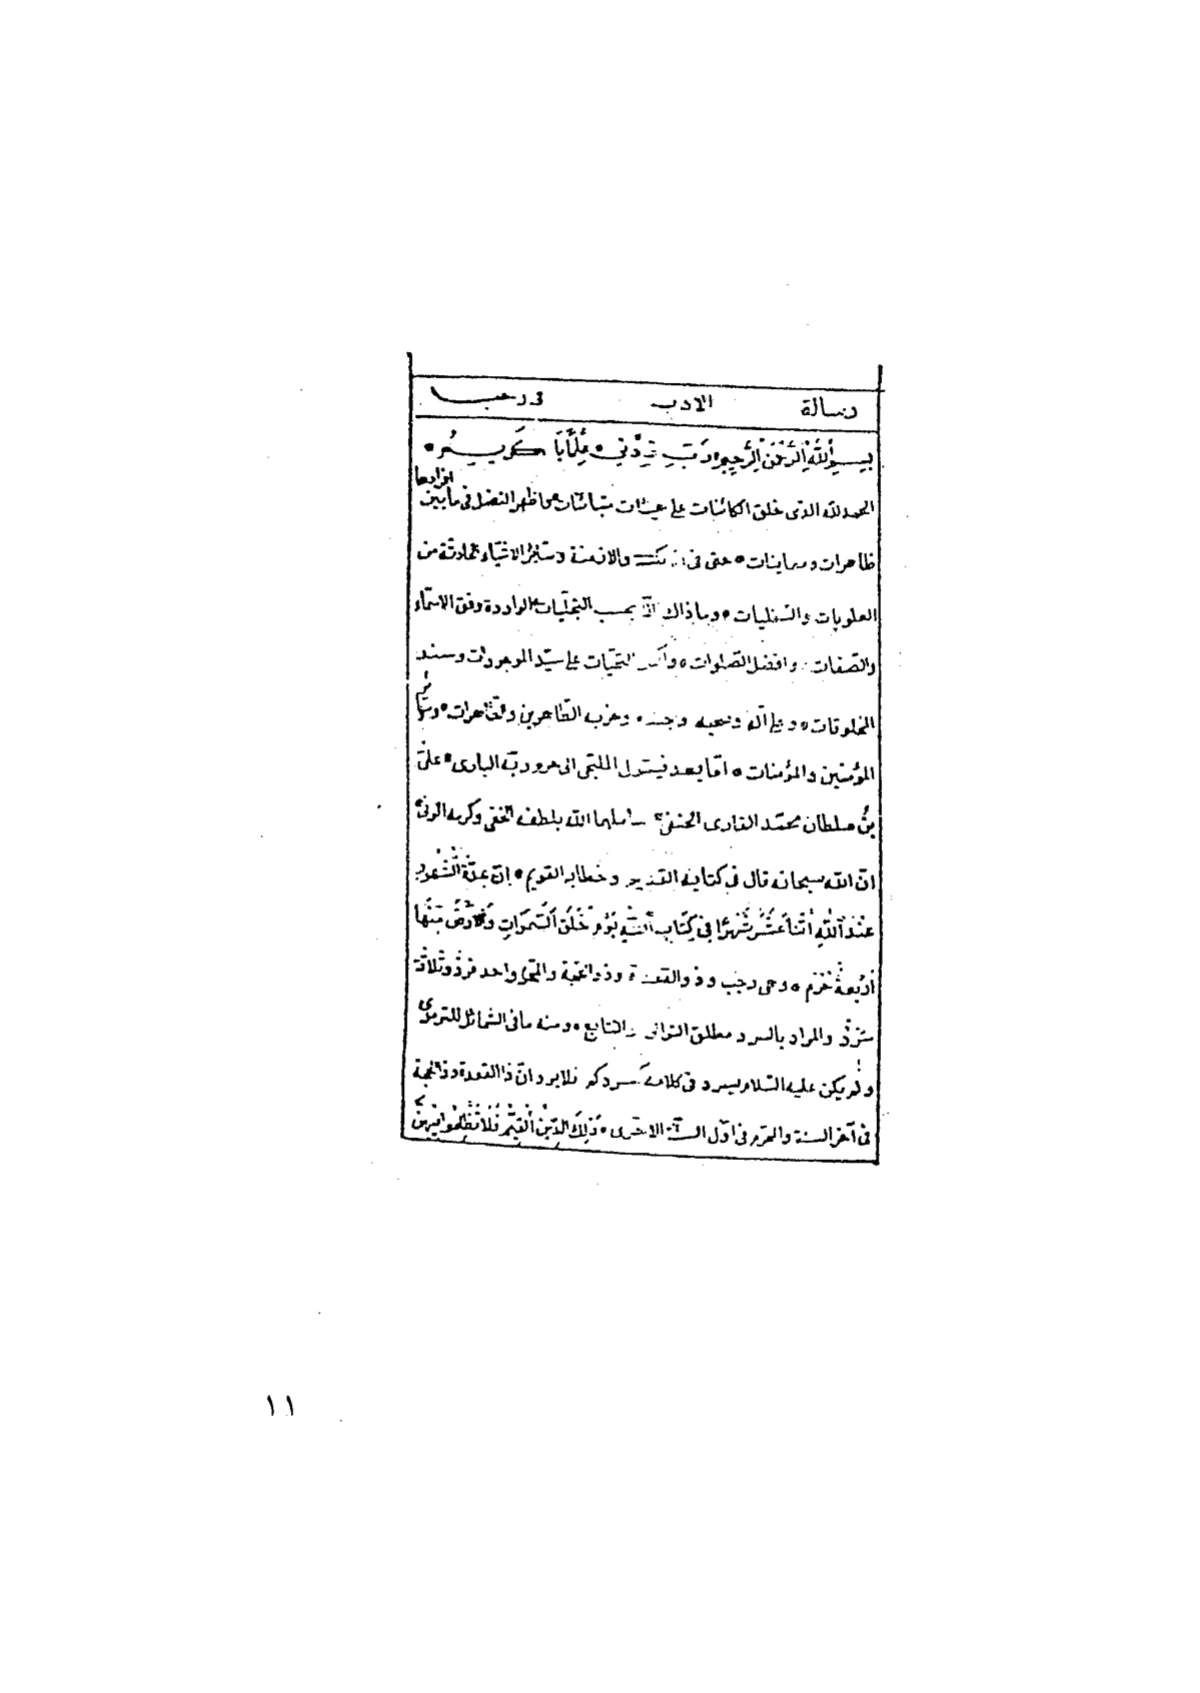 رسالة الادب فى رجب
بسم الله الرحمن الرحيم رب زدني علما يا كريم
الحمد لله الذى خلق الكائنات على متباينات مظاهر التفضل فى ما بين افرادها
ظاهرات ومباينات حتى فى والازمنة وسائر الاشياء الحادثة من
العلويات والسفليات وما ذاك الا بحسب التجليات الواردة وفق الاسماء
والصفات وافضل الصلوات التحيات على سيد الموجودات وسند
المخلوقات وعلى آله وصحبه وجنده وحزبه الطاهرين والطاهرات وسائر
المؤمنين والمؤمنات اما بعد فيقول الملتجى الى حرم ربه البارى على
بن سلطان محمد القارى الحنفى عاملهما الله بلطفه الخفى وكرمه الوفى
ان الله سبحانه قال فى كتابه القديم وخطابه القويم ان عدة الشهور
عند الله اثنا عشر شهرا فى كتاب الله يوم خلق السموات والارض منها
اربعة حرم وهى رجب وذو القعدة وذو الحجة والمحرم واحد فرد وثلاثة
سرد والمراد بالسرد مطلق التوالى والتتابع ومنه ما فى الشمائل للترمذى
ولم يكن عليه السلام يسرد فى كلامه كسردكم فلا يرد ان ذا القعدة وذا الحجة
فى آخر السنة والمحرم فى اول السنة الاخرى ذلك الدين القيم فلا تظلموا فيهن
١١